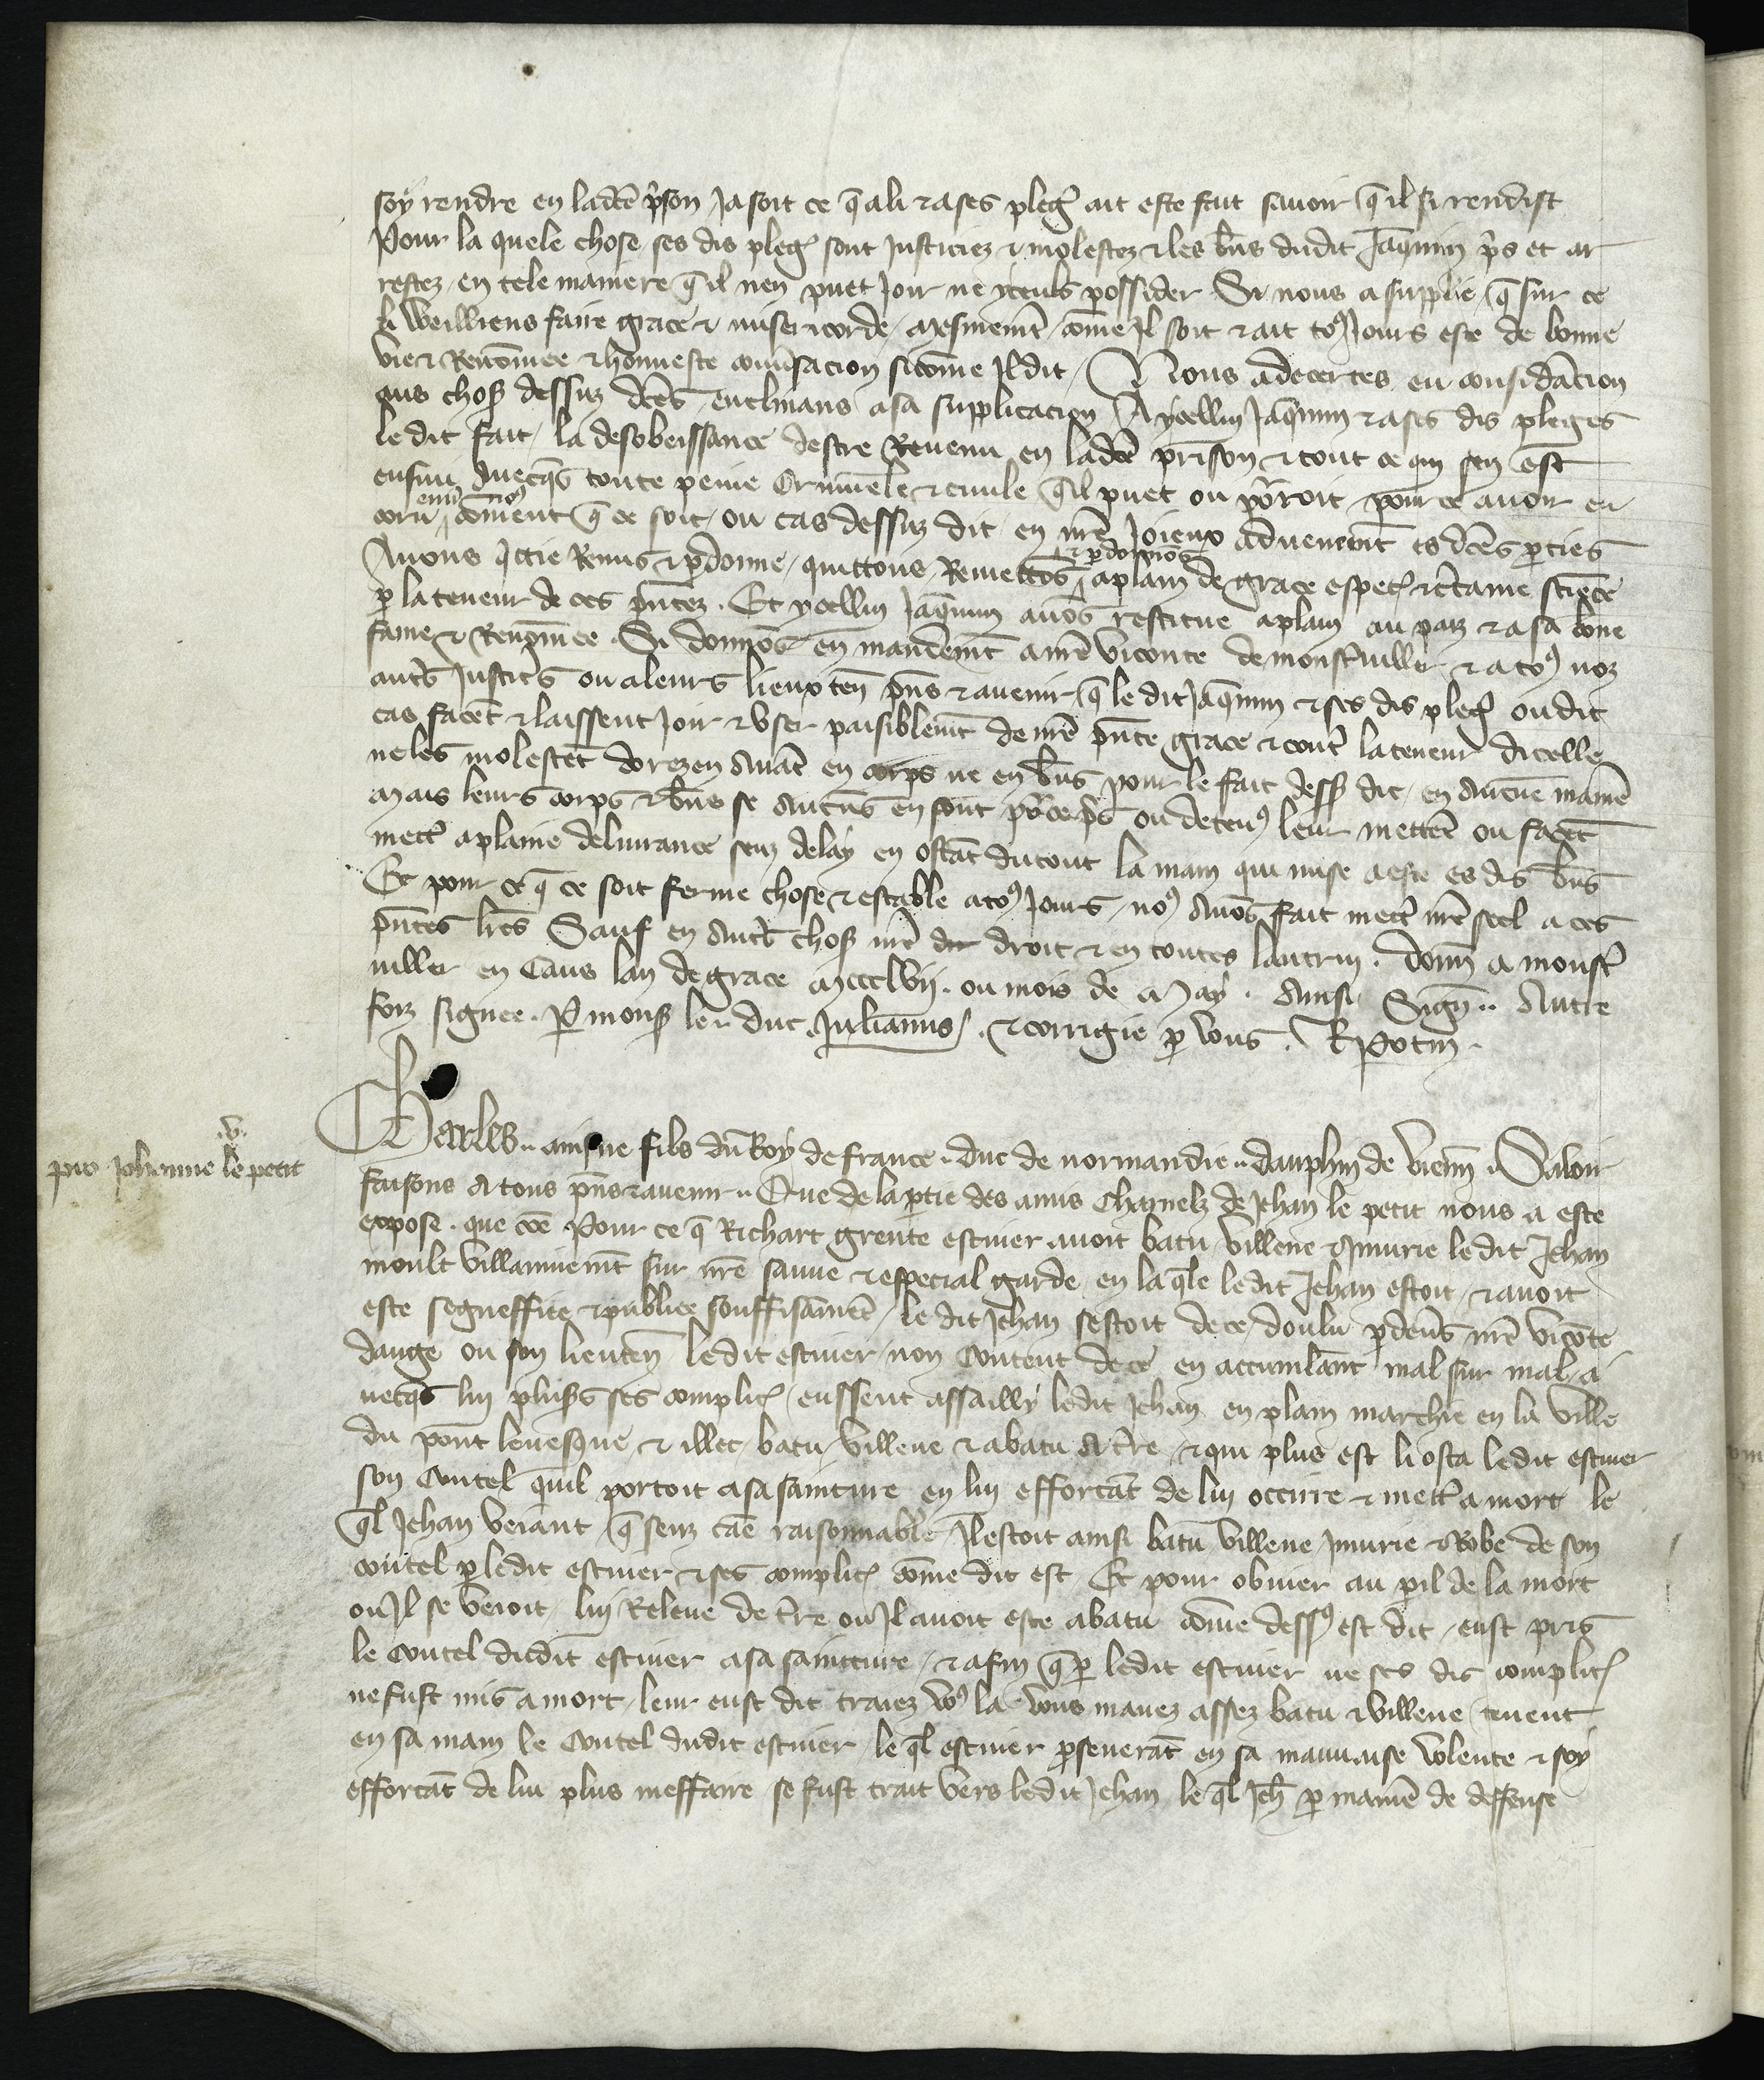 soy rendre en ladcte pson Ja soit ce q̃ a li ⁊ a ses pleg̃ ait este fait sauoir q̃ il si rendist
Pour la quele chose ses dis pleg̃ sont Justiciez ⁊ molestez ⁊ les bñs dudit Jaq̃min pris et ar
restez en tele maniere q̃ il nen puet Joir ne yceuls possider Si nous a supplie q̃ sur ce
li veilliens faire grace ⁊ misericorde mesmemẽt cõme Il soit ⁊ ait toꝰ Jours este de bonne
vie ⁊ Renõmee ⁊ honneste conuẽsacion sicõme Il dit Nous adecertes en considãcion
aus chos̃ dessuz dc̃es enclinans a sa supplicacion A ycellui Jaq̃min ⁊ a ses dis pleges
le dit fait la desobeissance destre Reuenu en ladc̃e prison ⁊ tout ce qui sen est
ensui auecq̃s toute peine Criminele ⁊ ciuile q̃l puet ou porroit pour ce auoir en
coru enũs noꝰ cõment q̃ ce soit ou cas dessuz dit en nr̃e Joieux aduenemẽt es dc̃es p̃ties
Auons q̃ctie Remis ⁊ p̃donne quittons Remettõs ⁊ p̃donnõs a plain de grace espec̃ ⁊ c̃taine sciẽce
p̃ la teneur de ces pñtez . Et ycellui Jaq̃min auõs restitue a plain au paiz ⁊ a sa bõne
fame ⁊ Renõmee . Si donnõs en mandemẽt a nr̃e viconte de monst̃uiller ⁊ a toꝰ noz
aut̃s Justic̃s ou a leurs lieux teñ pñs ⁊ auenir q̃ le dit Jaq̃min ⁊ ses dis pleg̃ ou dit
cas facẽt ⁊ laissent Joir ⁊ vser paisiblemẽt de nr̃e pñte grace ⁊ cont̃ la teneur dicelle
ne les molestẽt dorezen auãt en corps ne en bñs pour le fait dess̃ dit en aucũe maniẽ
Mais leurs corps ⁊ bñs se aucũs en sont pour ce p̃s ou detenꝰ leur mettẽt ou facẽt
mett̃ a plaine deliurance senz delay en ostãt du tout la main qui mise a este es dis bñs
Et pour ce q̃ ce soit ferme chose ⁊ estable a toꝰ Jours noꝰ auõs fait mett̃ nr̃e seel a ces
pñtes lr̃es Sauf en aut̃s chos̃ nr̃e droit ⁊ en toutes lautrui . donñ a monst̃
uiller en Caus lan de grace mccclvij . ou mois de May . Ainsi Signẽ .. Autre
foiz signee . P̃ mons̃ le duc . Julianus . ⁊ corrigie p̃ vous . R Potin .
.v.
pro Johanne le petit
Charles .. ainsne filz du Roy de france .. duc de normandie .. dauphin de vienñ .. Sauoir
faisons A tous pñs ⁊ auenir .. Que de la p̃tie des amis Charnelz de Jehan le petit nous a este
expose . que cõe Pour ce q̃ Richart grente escuier auoit batu villene ⁊ Iniurie le dit Jehan
moult villainnemẽt sur nr̃e sauue ⁊ especial garde en la q̃le ledit Jehan estoit ⁊ auoit
este segneffiee ⁊ publiee souffisãmẽt le dit Jehan sestoit de ce doulu p̃deuãs nr̃e vicõte
dauge ou son lieuteñ le dit escuier non Content de ce en accumulãnt mal sur mal a
uecq̃s lui plus̃s ses complic̃ eussent assailly ledit Jehan en plain marchie en la ville
du pont leuesque ⁊ illec batu villene ⁊ abatu A tr̃e ⁊ qui plus est li osta ledit escuier
son Coutel quil portoit a sa sainture en lui efforcãt de lui occirre ⁊ mett̃ a mort le
q̃l Jehan veiant q̃ senz cãe raisonnable Il estoit ainsi batu villene Iniurie ⁊ Robe de son
coutel p̃ ledit escuier ⁊ ses complic̃ cõme dit est Et pour obuier au p̃il de la mort
ou Il se veioit lui Releue de tr̃e ou Il auoit este abatu cõme dessꝰ est dit eust pris
le coutel dudit escuier a sa saincture ⁊ afin q̃ p̃ ledit escuier ne ses dis complic̃
ne fust mis a mort leur eust dit traiez voꝰ la vous mauez assez batu ⁊ villene tenent
en sa main le Coutel dudit escuier le q̃l escuier p̃seuerãt en sa mauuaise volente ⁊ soy
efforcãt de lui plus meffaire se fust trait vers ledit Jehan le q̃l Jeh̃ p̃ maniẽ de deffense